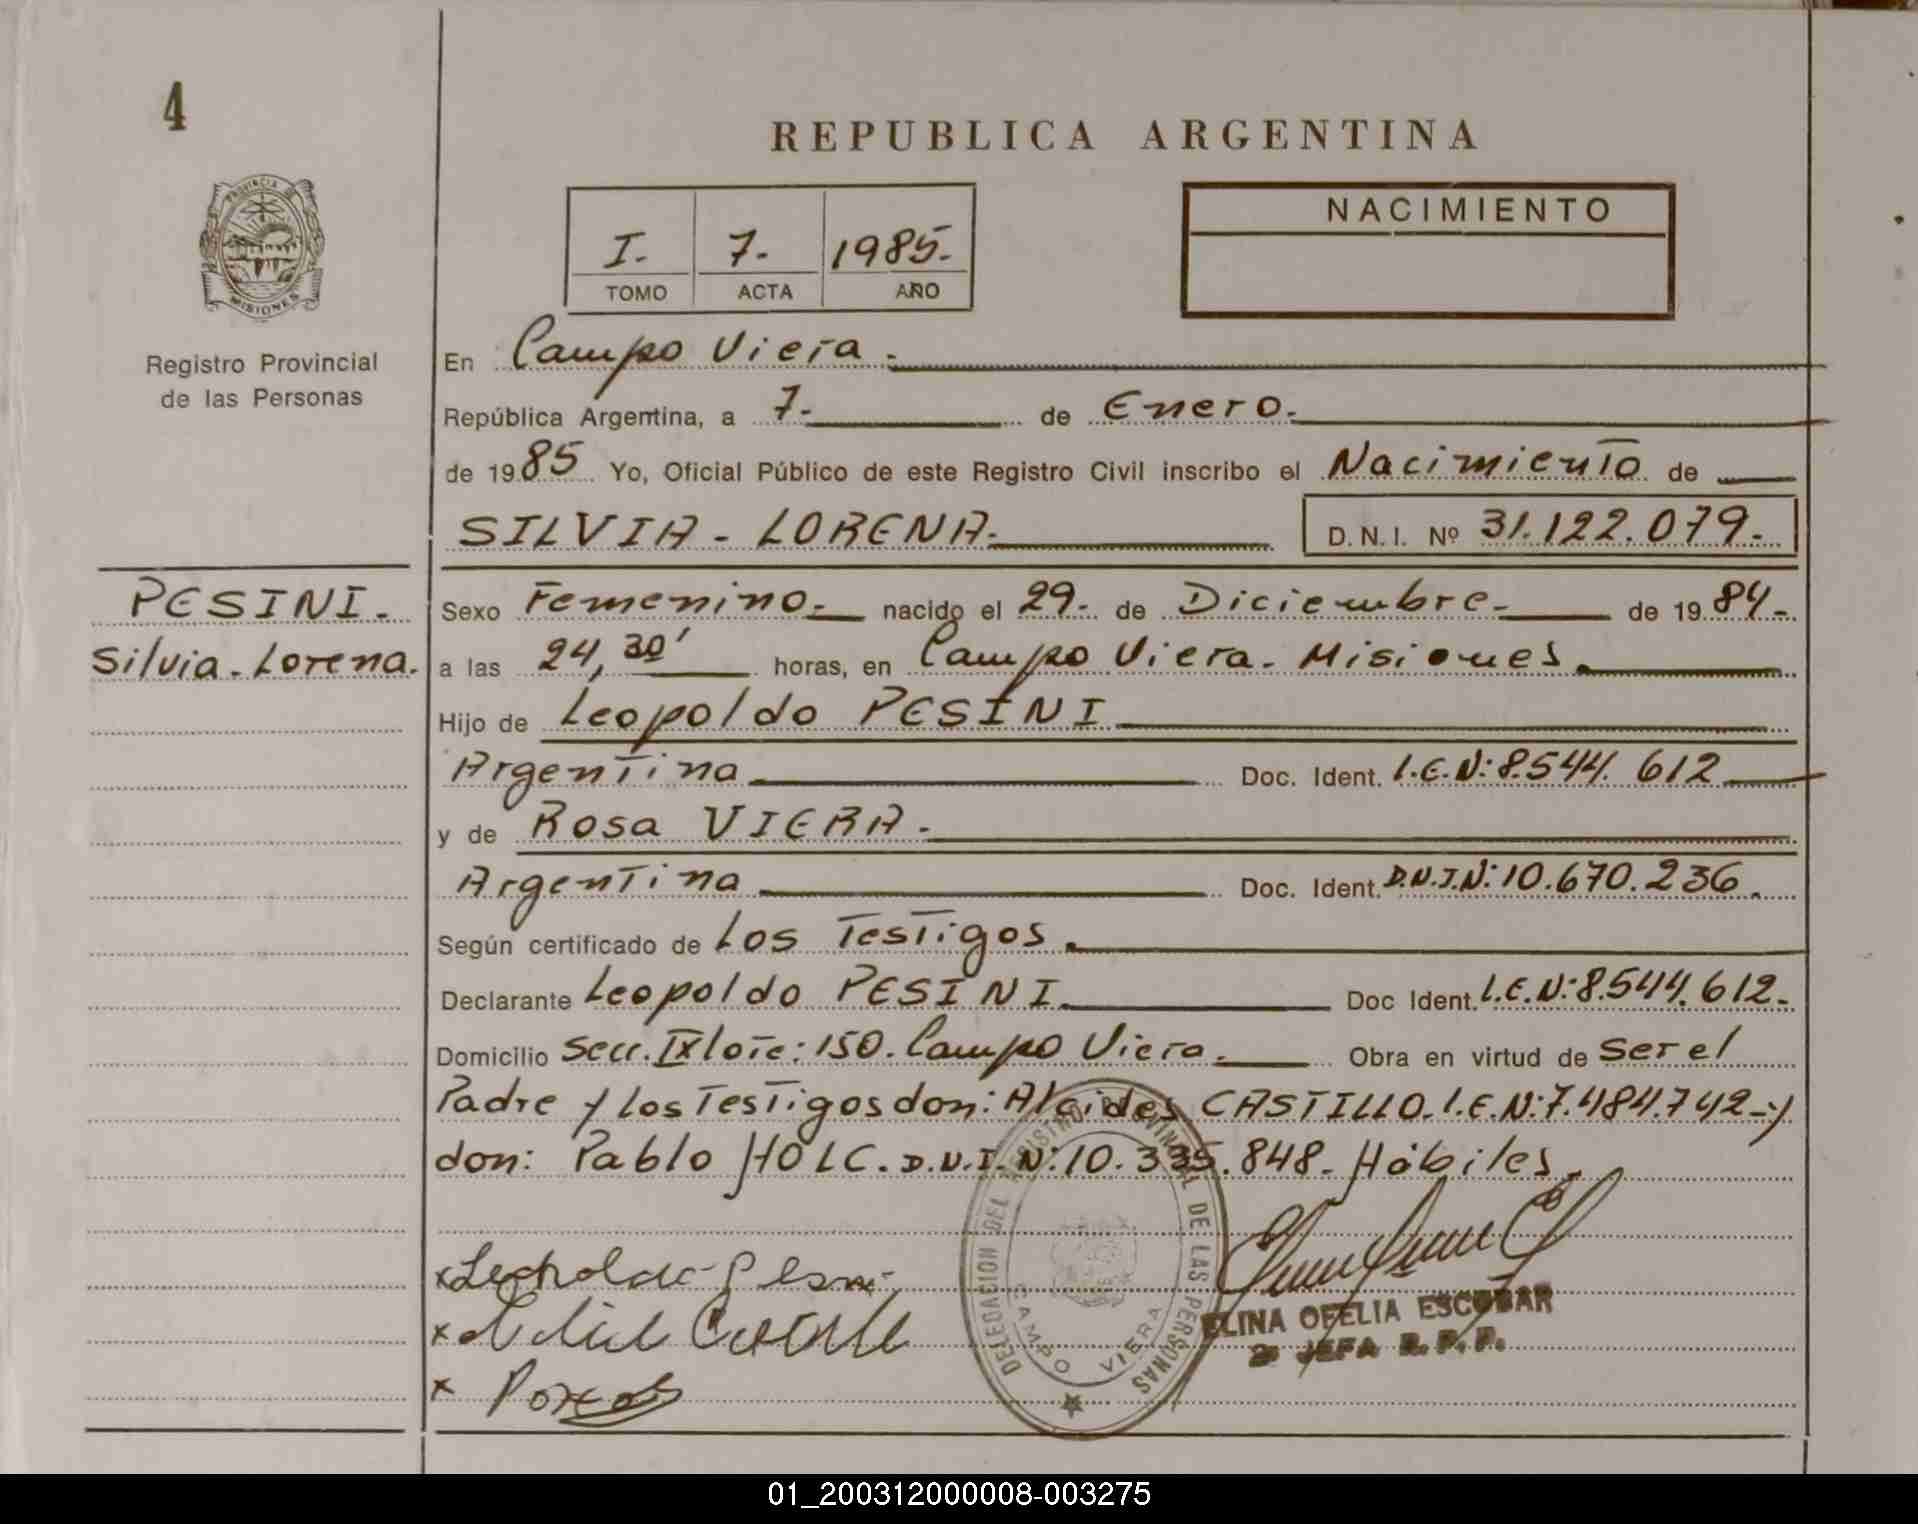 4
REPUBLICA ARGENTINA
PROVINCIA DE
MISIONES
Registro Provincial
de las Personas
I.- 7.- 1985.-
TOMO ACTA AÑO
NACIMIENTO
En Campo Viera.-
República Argentina, a 7.- de Enero.-
de 1985 Yo, Oficial Público de este Registro Civil inscribo el Nacimiento de
SILVIA - LORENA.- D.N.I. Nº 31.122.079.-
PESINI.-
Silvia - Lorena.
Sexo Femenino.- nacido el 29.- de Diciembre.- de 1984.-
a las 24,30' horas, en Campo Viera - Misiones.
Hijo de Leopoldo PESINI
Argentina Doc. Ident. L.E.N: 8.544.612
y de Rosa VIERA.-
Argentina Doc. Ident. D.N.I.N: 10.670.236.
Según certificado de Los Testigos.
Declarante Leopoldo PESINI. Doc Ident. L.E.N: 8.544.612.-
Domicilio Secc. IX lote: 150. Campo Viera.- Obra en virtud de ser el
Padre y los Testigos don: Alcides CASTILLO. L.E.N: 7.484.742.- y
don: Pablo HOLC. D.N.I. N: 10.335.848.- Hábiles.
DELEGACION DEL REGISTRO PROVINCIAL DE LAS PERSONAS
CAMPO VIERA
x Leopoldo Pesini
x
x
ELINA OFELIA ESCOBAR
JEFA R.P.P.
01_200312000008-003275